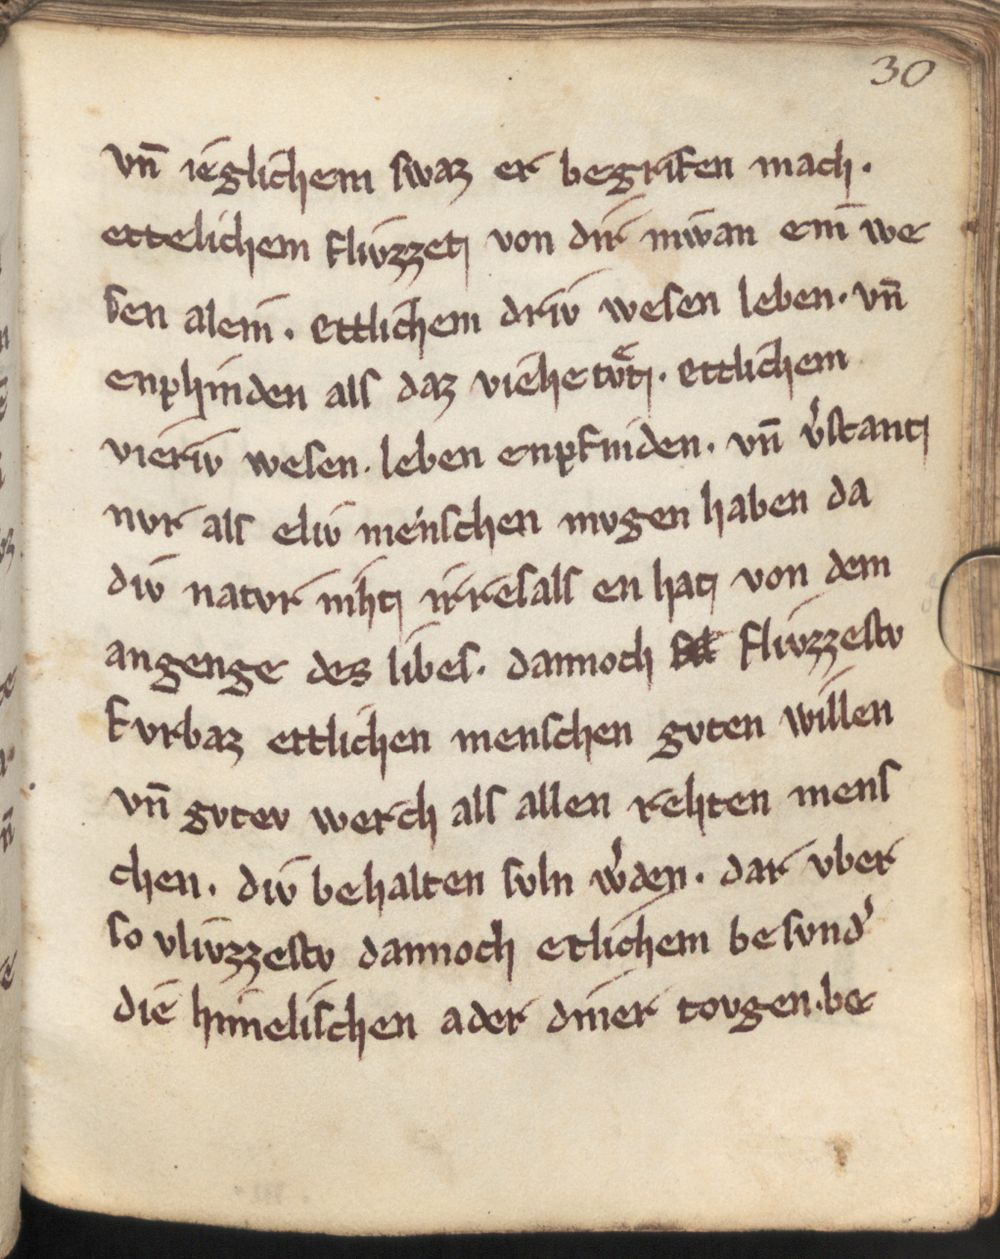 30
vn̄ ieglichem swaz er begrifen mach.
ettelichem flivzzet von dir niwan ein we
sen alein. ettlichem driv wesen leben. vn̄
enphinden als daz viehe tvͤt. ettlichem
vieriv wesen. leben enpfinden. vn̄ v̾stant
nvr als eliv menschen mvgen haben da
div natvr niht irresals en hat von dem
angenge des libes. dannoch flivzzestv
fvrbaz ettlichen menschen gvten willen
vn̄ gvtev werch als allen rehten mens
chen. div behalten svln w̾den. dar vber
so vlivzzestv dannoch etlichem besvnd̾
die himelischen ader diner tovgen. be